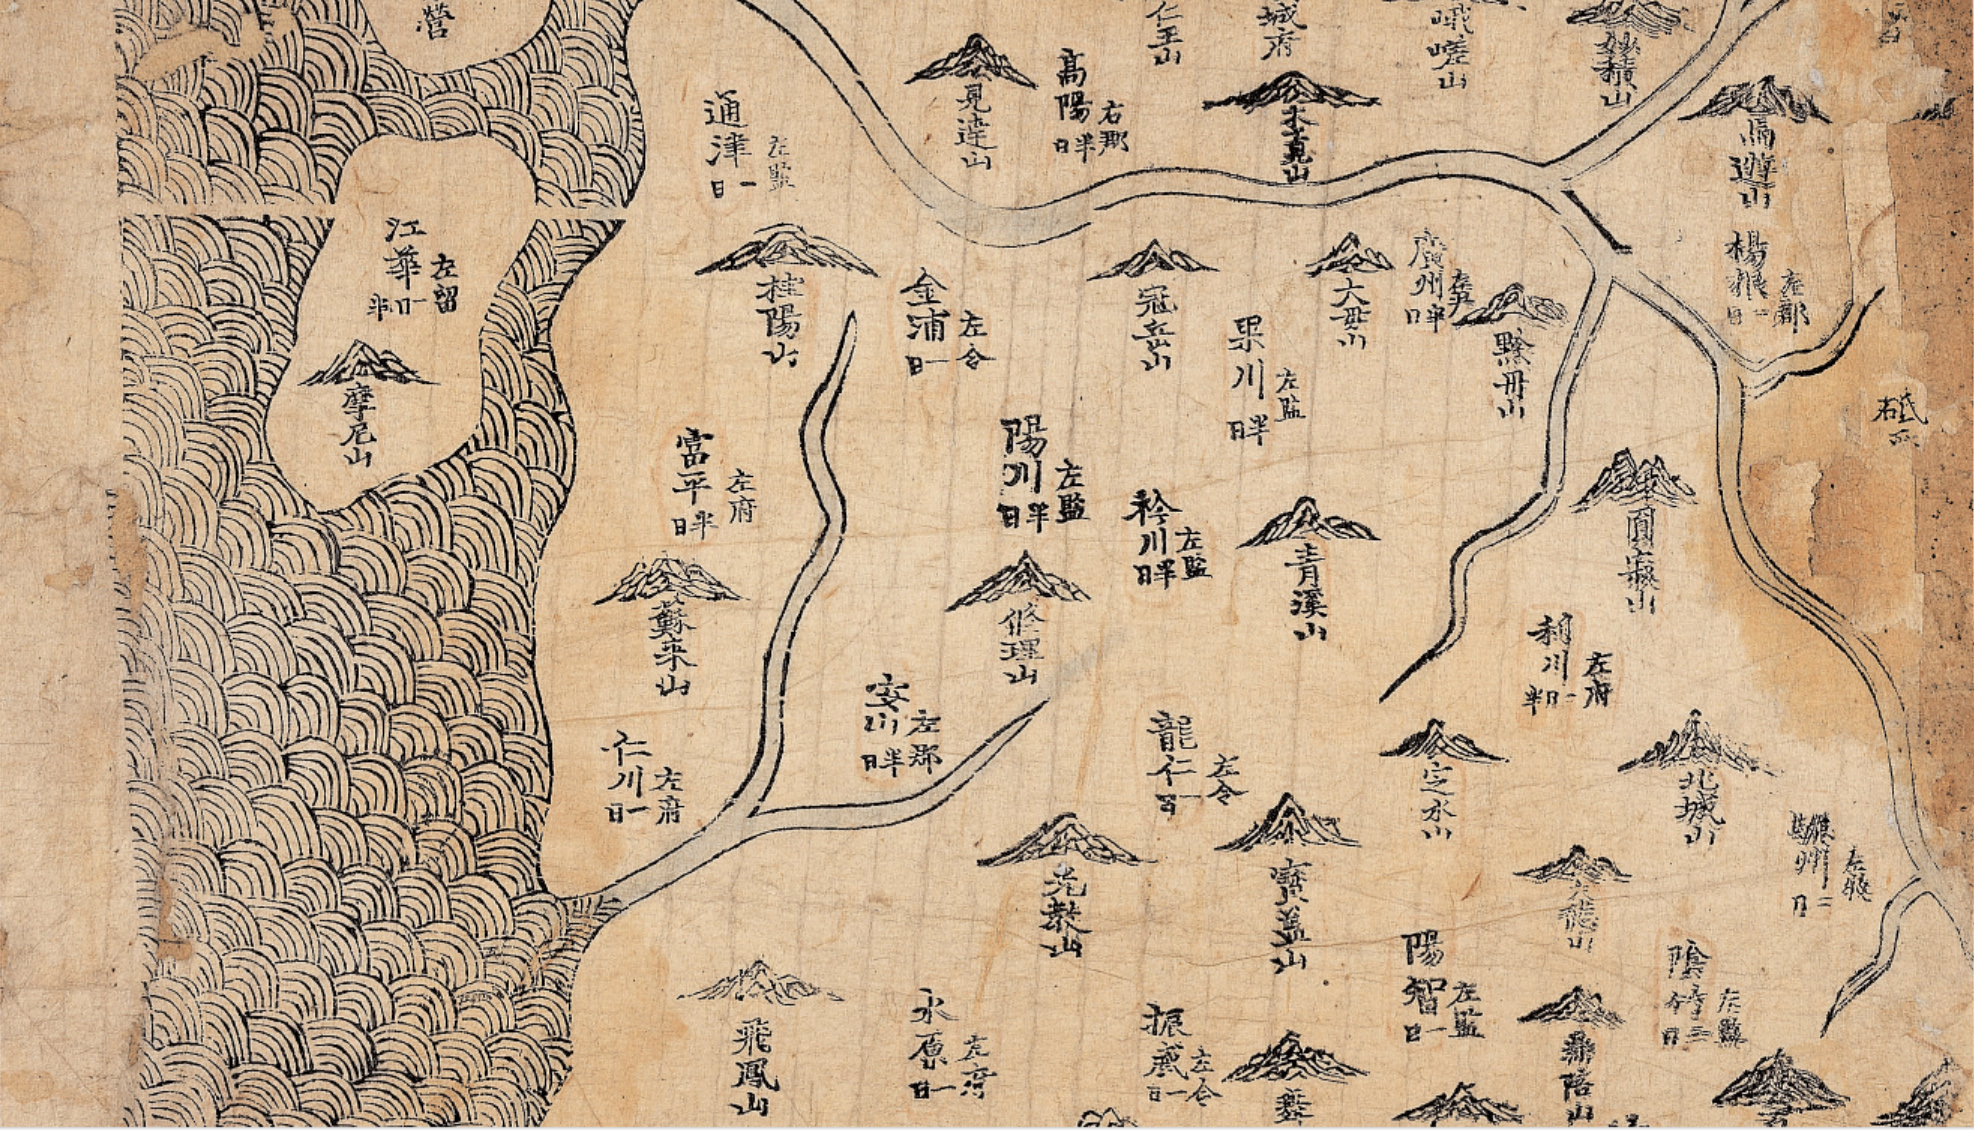 營
仁王山
城府
峨嵯山
見達山
高陽
右郡
半日
木覓山
通津
左監
一日
江華
左留
一日半
摩尼山
桂陽山
金浦
左令
一日
冠岳山
大母山
廣州
左尹
半日
果川
左監
半日
黔丹山
楊根
左郡
一日
砥
右
富平
左府
半日
陽川
左監
半日
衿川
左監
半日
青溪山
蘇來山
修理山
利川
左府
一日半
仁川
左府
一日
安川
左郡
半日
龍仁
左令
一日
定水山
北城山
驪州
左牧
二日
光敎山
寶蓋山
陽智
左監
一日
陰竹
左監
三日
飛鳳山
水原
左府
一日
振威
左令
一日